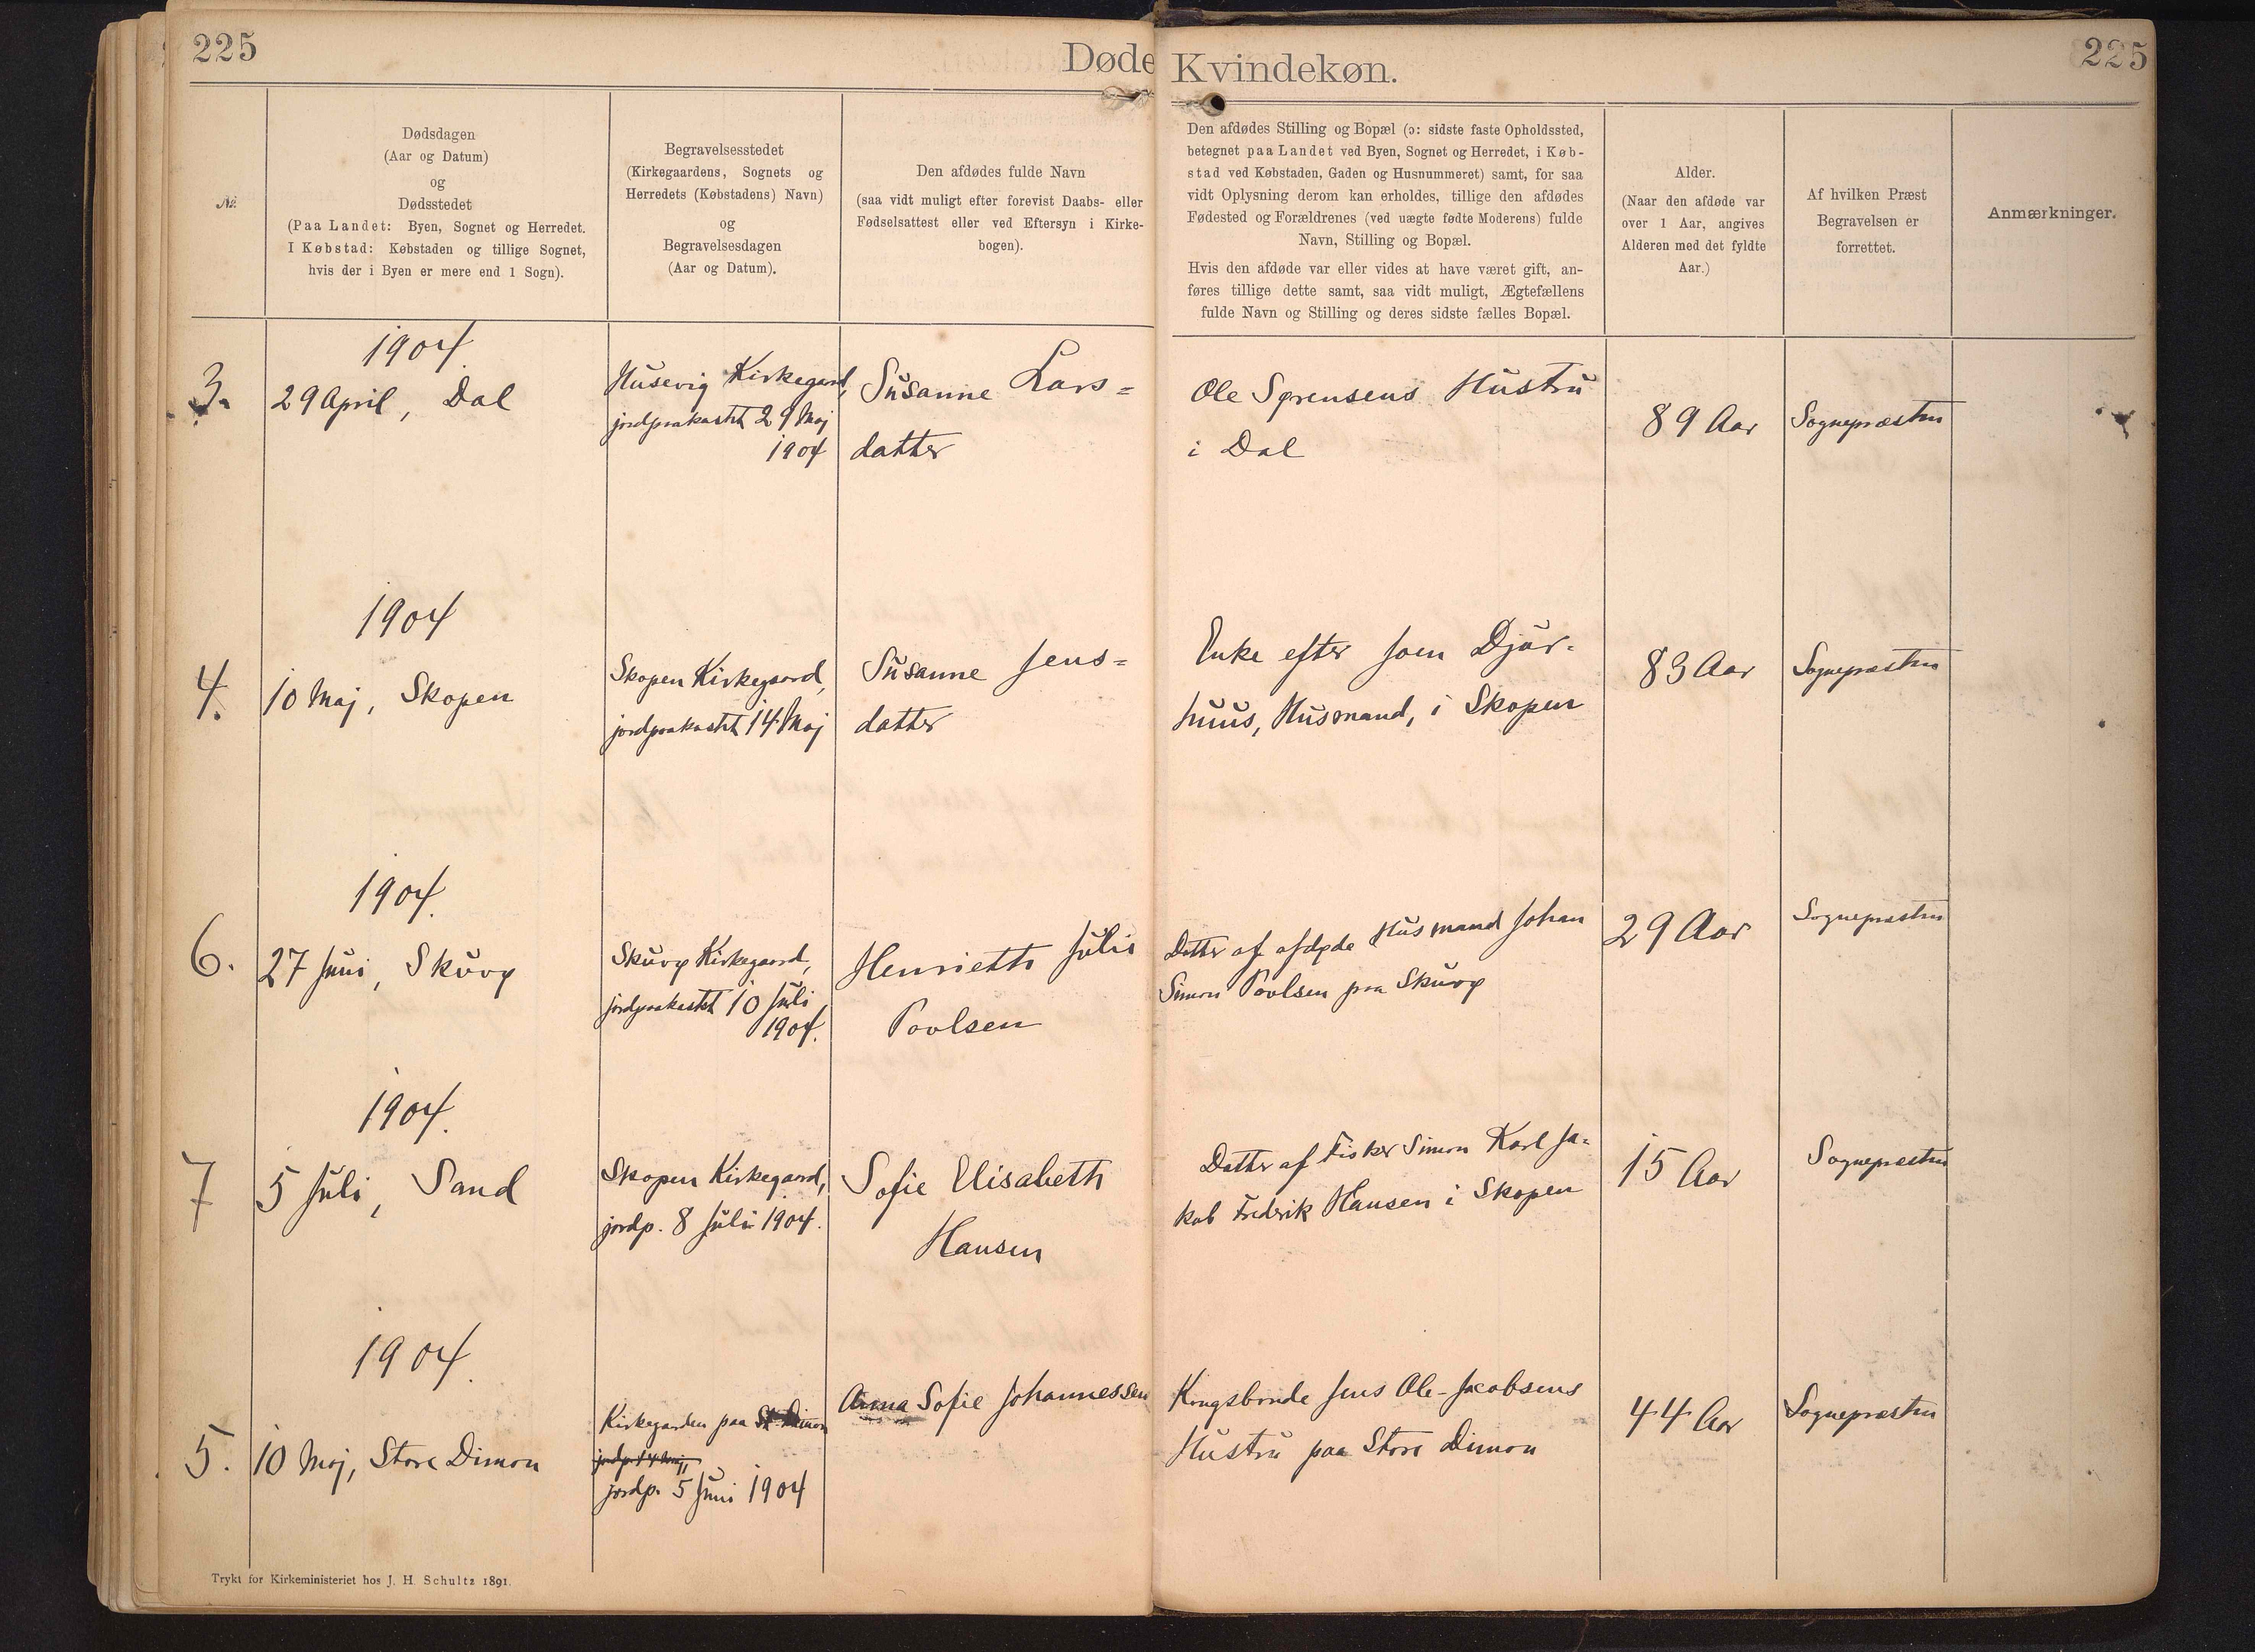 225
Døde Kvindekøn.
225
№
Dødsdagen
(Aar og Datum)
og
Dødsstedet
(Paa Landet: Byen, Sognet og Herredet.
I Købstad: Købstaden og tillige Sognet,
hvis der i Byen er mere end 1 Sogn).
Begravelsesstedet
(Kirkegaardens, Sognets og
Herredets (Købstadens) Navn)
og
Begravelsesdagen
(Aar og Datum).
Den afdødes fulde Navn
(saa vidt muligt efter forevist Daabs- eller
Fødselsattest eller ved Eftersyn i Kirke-
bogen).
Den afdødes Stilling og Bopæl (ɔ: sidste faste Opholdssted,
betegnet paa Landet ved Byen, Sognet og Herredet, i Køb-
stad ved Købstaden, Gaden og Husnummeret) samt, for saa
vidt Oplysning derom kan erholdes, tillige den afdødes
Fødested og Forældrenes (ved uægte fødte Moderens) fulde
Navn, Stilling og Bopæl.
Hvis den afdøde var eller vides at have været gift, an-
føres tillige dette samt, saa vidt muligt, Ægtefællens
fulde Navn og Stilling og deres sidste fælles Bopæl.
Alder.
(Naar den afdøde var
over 1 Aar, angives
Alderen med det fyldte
Aar.)
Af hvilken Præst
Begravelsen er
forrettet.
Anmærkninger.
3.
1904.
29 April, Dal
Husevig Kirkegaard,
jordpaakastet 29 Maj
1904
Susanne Lars=
datter
Ole Sørensens Hustru
i Dal
89 Aar
Sognepræsten
4.
1904
10 Maj, Skopen
Skopen Kirkegaard,
jordpaakastet 14 Maj
Susanne Jens=
datter
Enke efter Joen Djur-
huus, Husmand, i Skopen
83 Aar
Sognepræsten
6.
1904.
27 Juni, Skuvø
Skuvø Kirkegaard,
jordpaakastet 10 Juli
1904.
Henriette Julie
Poulsen
Datter af afdøde Husmand Johan
Simon Poulsen paa Skuvø
29 Aar
Sognepræsten
7
1904.
5 Juli, Sand
Skopen Kirkegaard,
jordp. 8 Juli 1904.
Sofie Elisabeth
Hansen
Datter af Fisker Simon Karl Ja-
kob Frederik Hansen i Skopen
15 Aar
Sognepræsten
5.
1904.
10 Maj, Store Dimon
Kirkegarden paa St. Dimon
jordp. 14 Maj,
jordp. 5 Juni 1904
Anna Sofie Johannessen
Kongsbonde Jens Ole Jacobsens
Hustru paa Store Dimon
44 Aar
Sognepræsten
Trykt for Kirkeministeriet hos J. H. Schultz 1891.